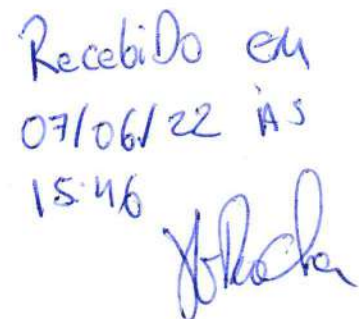 RecebiDo em
07/06/22 ÀS
15:46